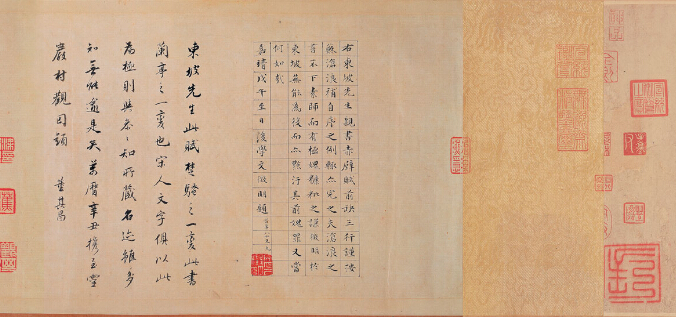 右東坡先生親書赤壁賦前缺三行謹按
蘇滄浪補自序之例輒亦完之夫滄浪之
書不下素師而有極愧糠秕之謙徵明於
東坡無能為役而亦點污其前愧罪又當
何如哉
嘉靖戊午至日後學文徵明題時年八十有九
東坡先生此賦楚騷之一變此書
蘭亭之一變也宋人文字俱以此
為極則與參參知所藏名迹雖多
知無能逾是矣萬曆辛丑攜至靈
巖村觀因題 董其昌